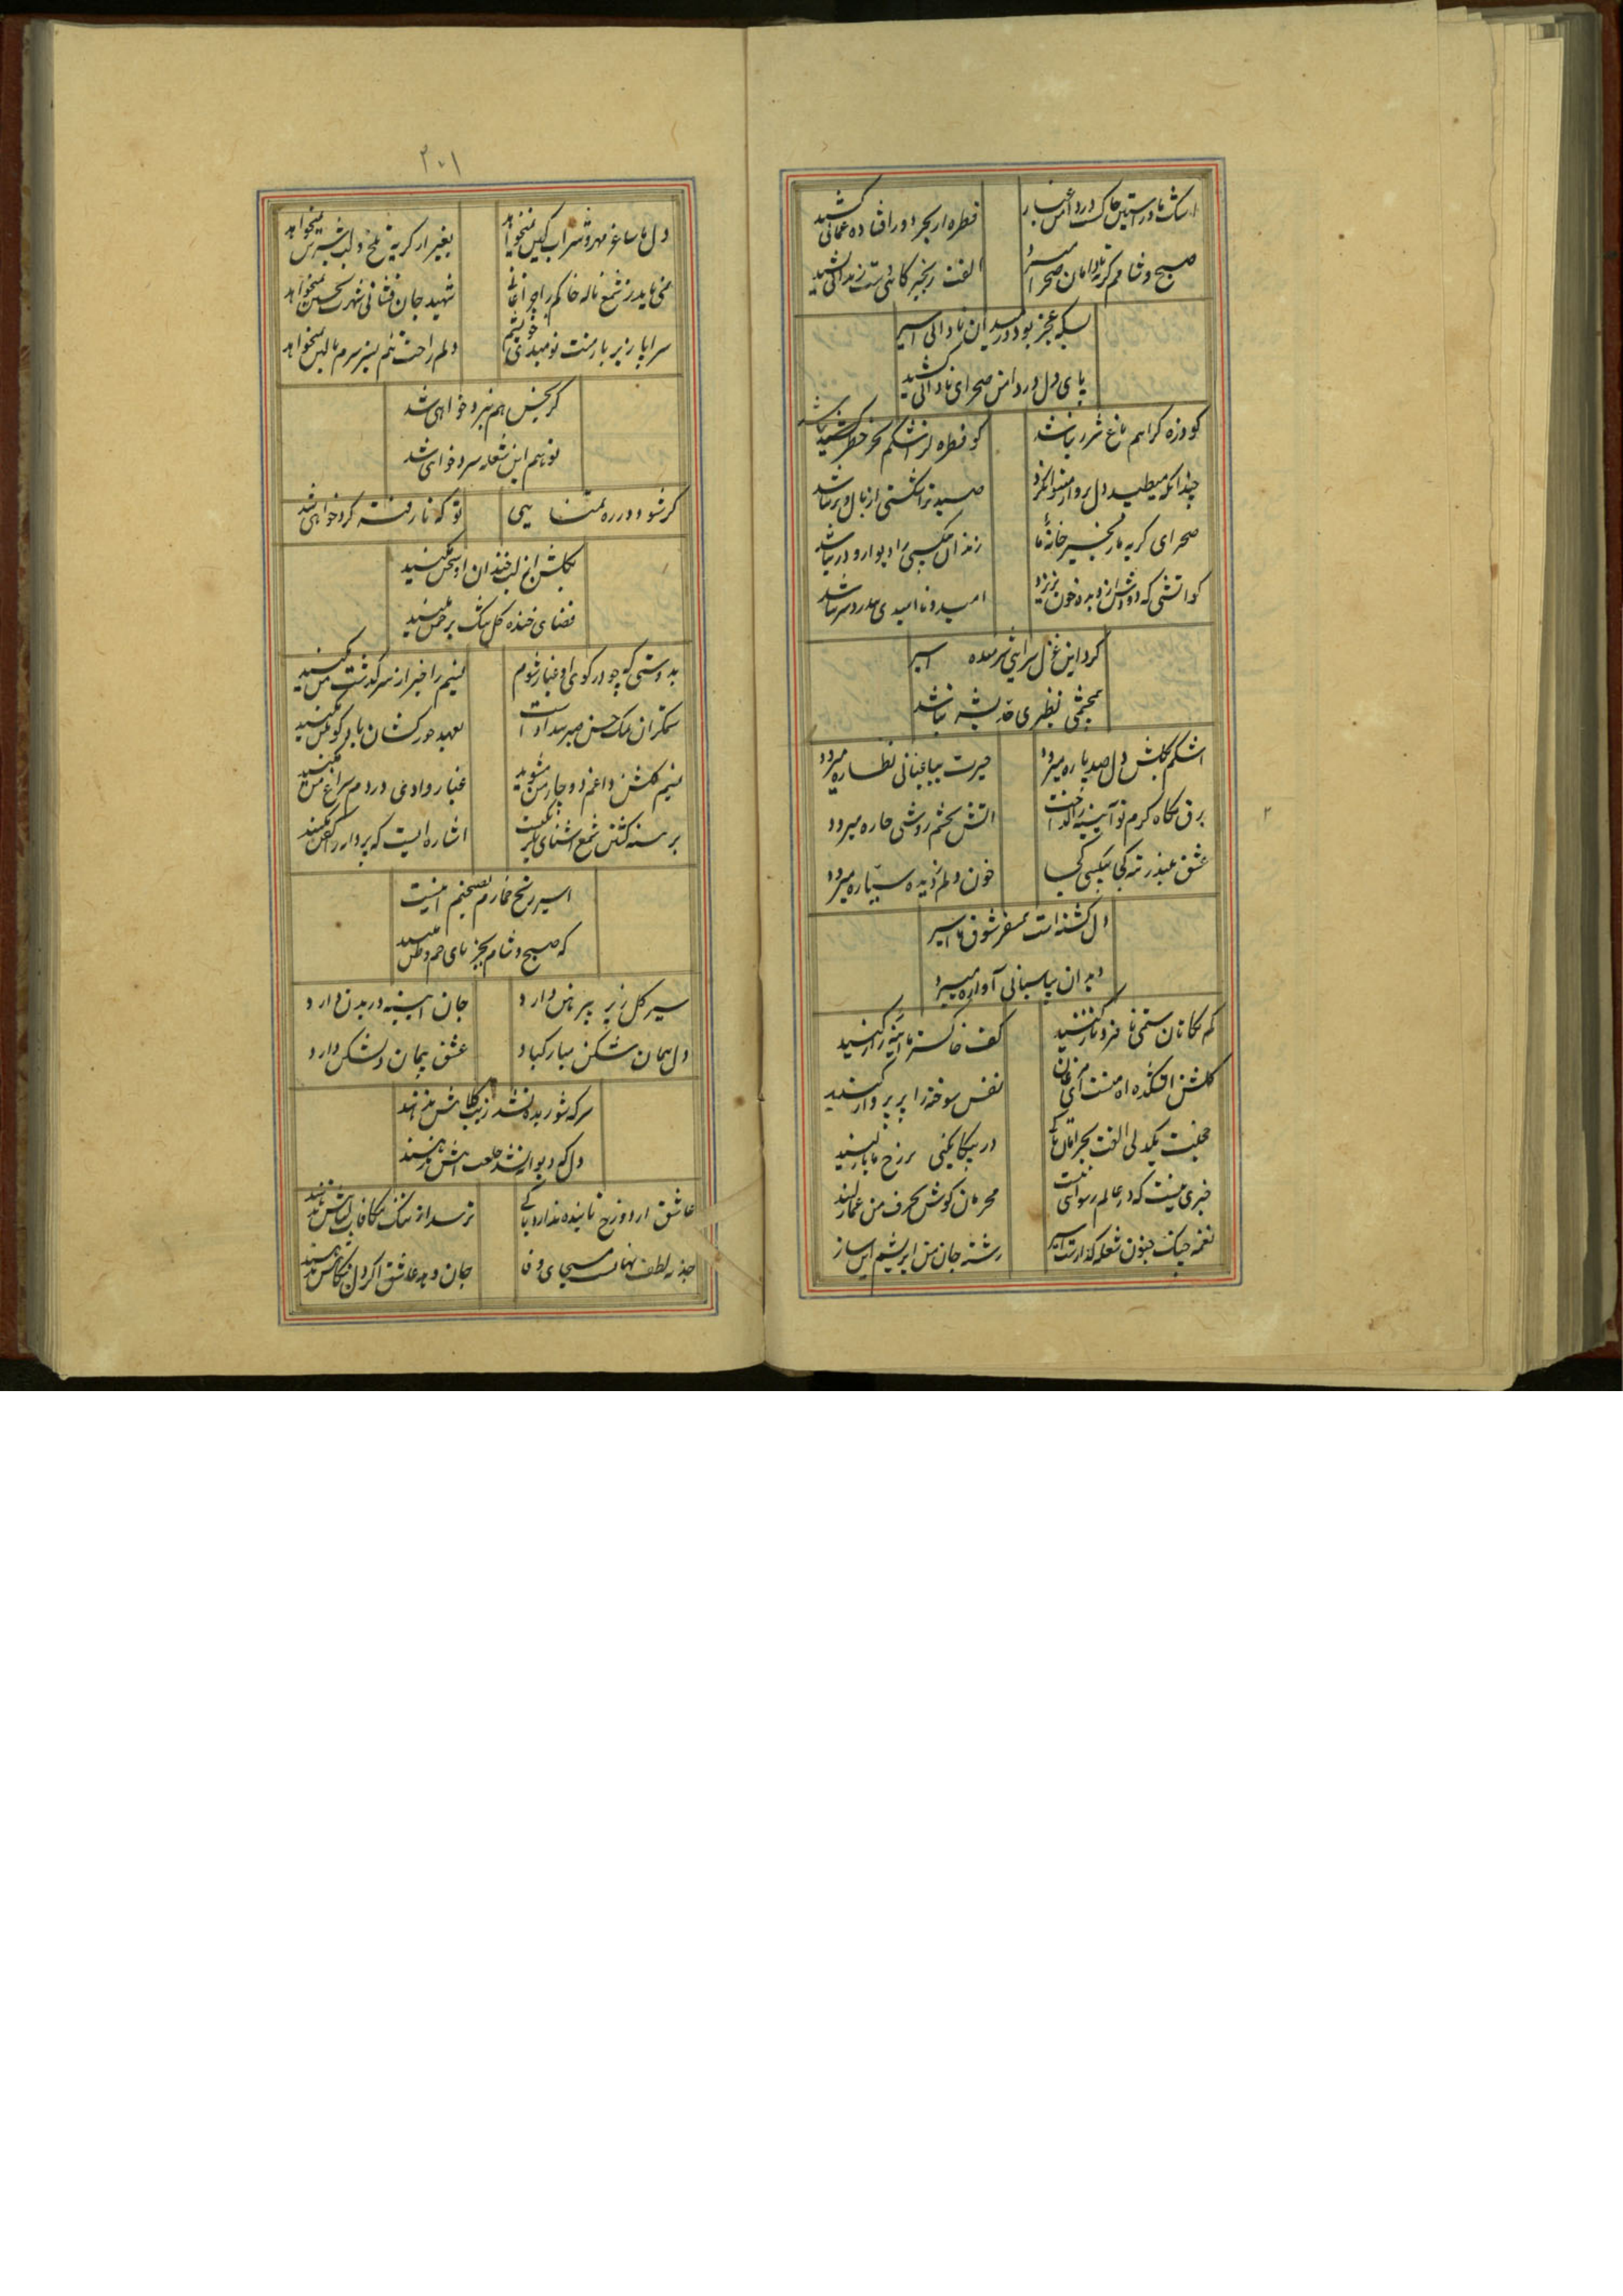 اشک ما در آستین خاک در دامن غبار
قطره از بحر دور افتاده عمانی کشید
صبح و شامم گریه با دامان صحرا میبرد
الفت زنجیر کاهی دست زندانی کشید
بسکه عجز بود در میدان نادانی اسیر
پای دل در دامن صحرای نادانی کشید
کو ذره کز اهم باغ شرر نباشد
کو قطره کز اشکم بحر خطر نباشد
چندانکه میطپید دل پرواز میتوان کرد
صید ترا شکستی از بال و پر نباشد
صحرای گریه ما زنجیر خانهٔ ما
زندان بیکسی را دیوار و در نباشد
کو آتشی که دودش از دیده خون نریزد
امید و ناامیدی بی دردسر نباشد
کرد این غزل سرایی شرمنده اسیر
همچشمی نظیری حد بشر نباشد
اشکم بگلشن دل صد پاره میرود
حیرت بباغبانی نظاره میرود
برق نگاه گرم تو آیینه را گداخت
آتش بچشم روشنی خاره میرود
عشق
خون دلم ز دیده سیاره میرود
دل گشته است همسفر شوق ما اسیر
دیوان بپاسبانی آواره میرود
که نگاتان ستمی با من و ناز کنید
کف خاکستر ما آینه راز کنید
گلشن افکنده ام منت ای مرغان
نفس سوخته را پر پرواز کنید
در بیگانگی بر رخ ما باز کنید
خبری نیست که در عالم رسوائی نیست
محرمان گوش بحرف من غماز کنید
نغمه چنگ جنون شعله گداز است اسیر
رشته جان من ابریشم این ساز کنید
۲۰۱
دل ما ساغر مهر و شراب کین نمیخواهد
بغیر از گریه تلخ و لب شیرین نمیخواهد
نمی باید ز شمع ناله خاکم را چراغانی
شهید جان فشانی شهرت تحسین نمیخواهد
سراپا زیر بار منت نومیدی خویشم
دلم راحت تنم بستر سرم بالین نمیخواهد
گر بچین هم نبرد خواهی شد
تو هم این شعله سرد خواهی شد
گر شود در ره تمنا پی
تو که نارفته گرد خواهی شد
بگلشن از لب خندان او سخن مکنید
فضای خنده گل تنگ بر چمن مکنید
بدوستی که چو در کوی او غبار شوم
نسیم را خبر از سرگذشت من مکنید
ستمگران ملک حسن صبر بیداد است
بعهد جورکشان یاد کوهکن مکنید
نسیم گلشن داغم دوچار من مشوید
غبار وادی دردم سراغ من مکنید
برهنه گشتن شمع آشنای یکرنگیست
اشاره ایست که پروانه را کفن مکنید
اسیر رنج خمارم نصیحتم اینست
که صبح و شام بجز پای خم وطن مکنید
سیر گل زیر پیرهن دارد
جان آیینه در بدن دارد
دل همان شکن مبارکباد
عشق پیمان دلشکن دارد
سر که شوریده نشد زیب کلاهش ندهند
دل که دیوانه نشد خلعت آهش ندهند
عاشق از دوزخ تابنده ندارد باکی
ترسد از ننگ مکافات گناهش ندهند
جذبه لطف نهانست مسیحای وفا
جان دهد عاشق اگر دل بنگاهش ندهند